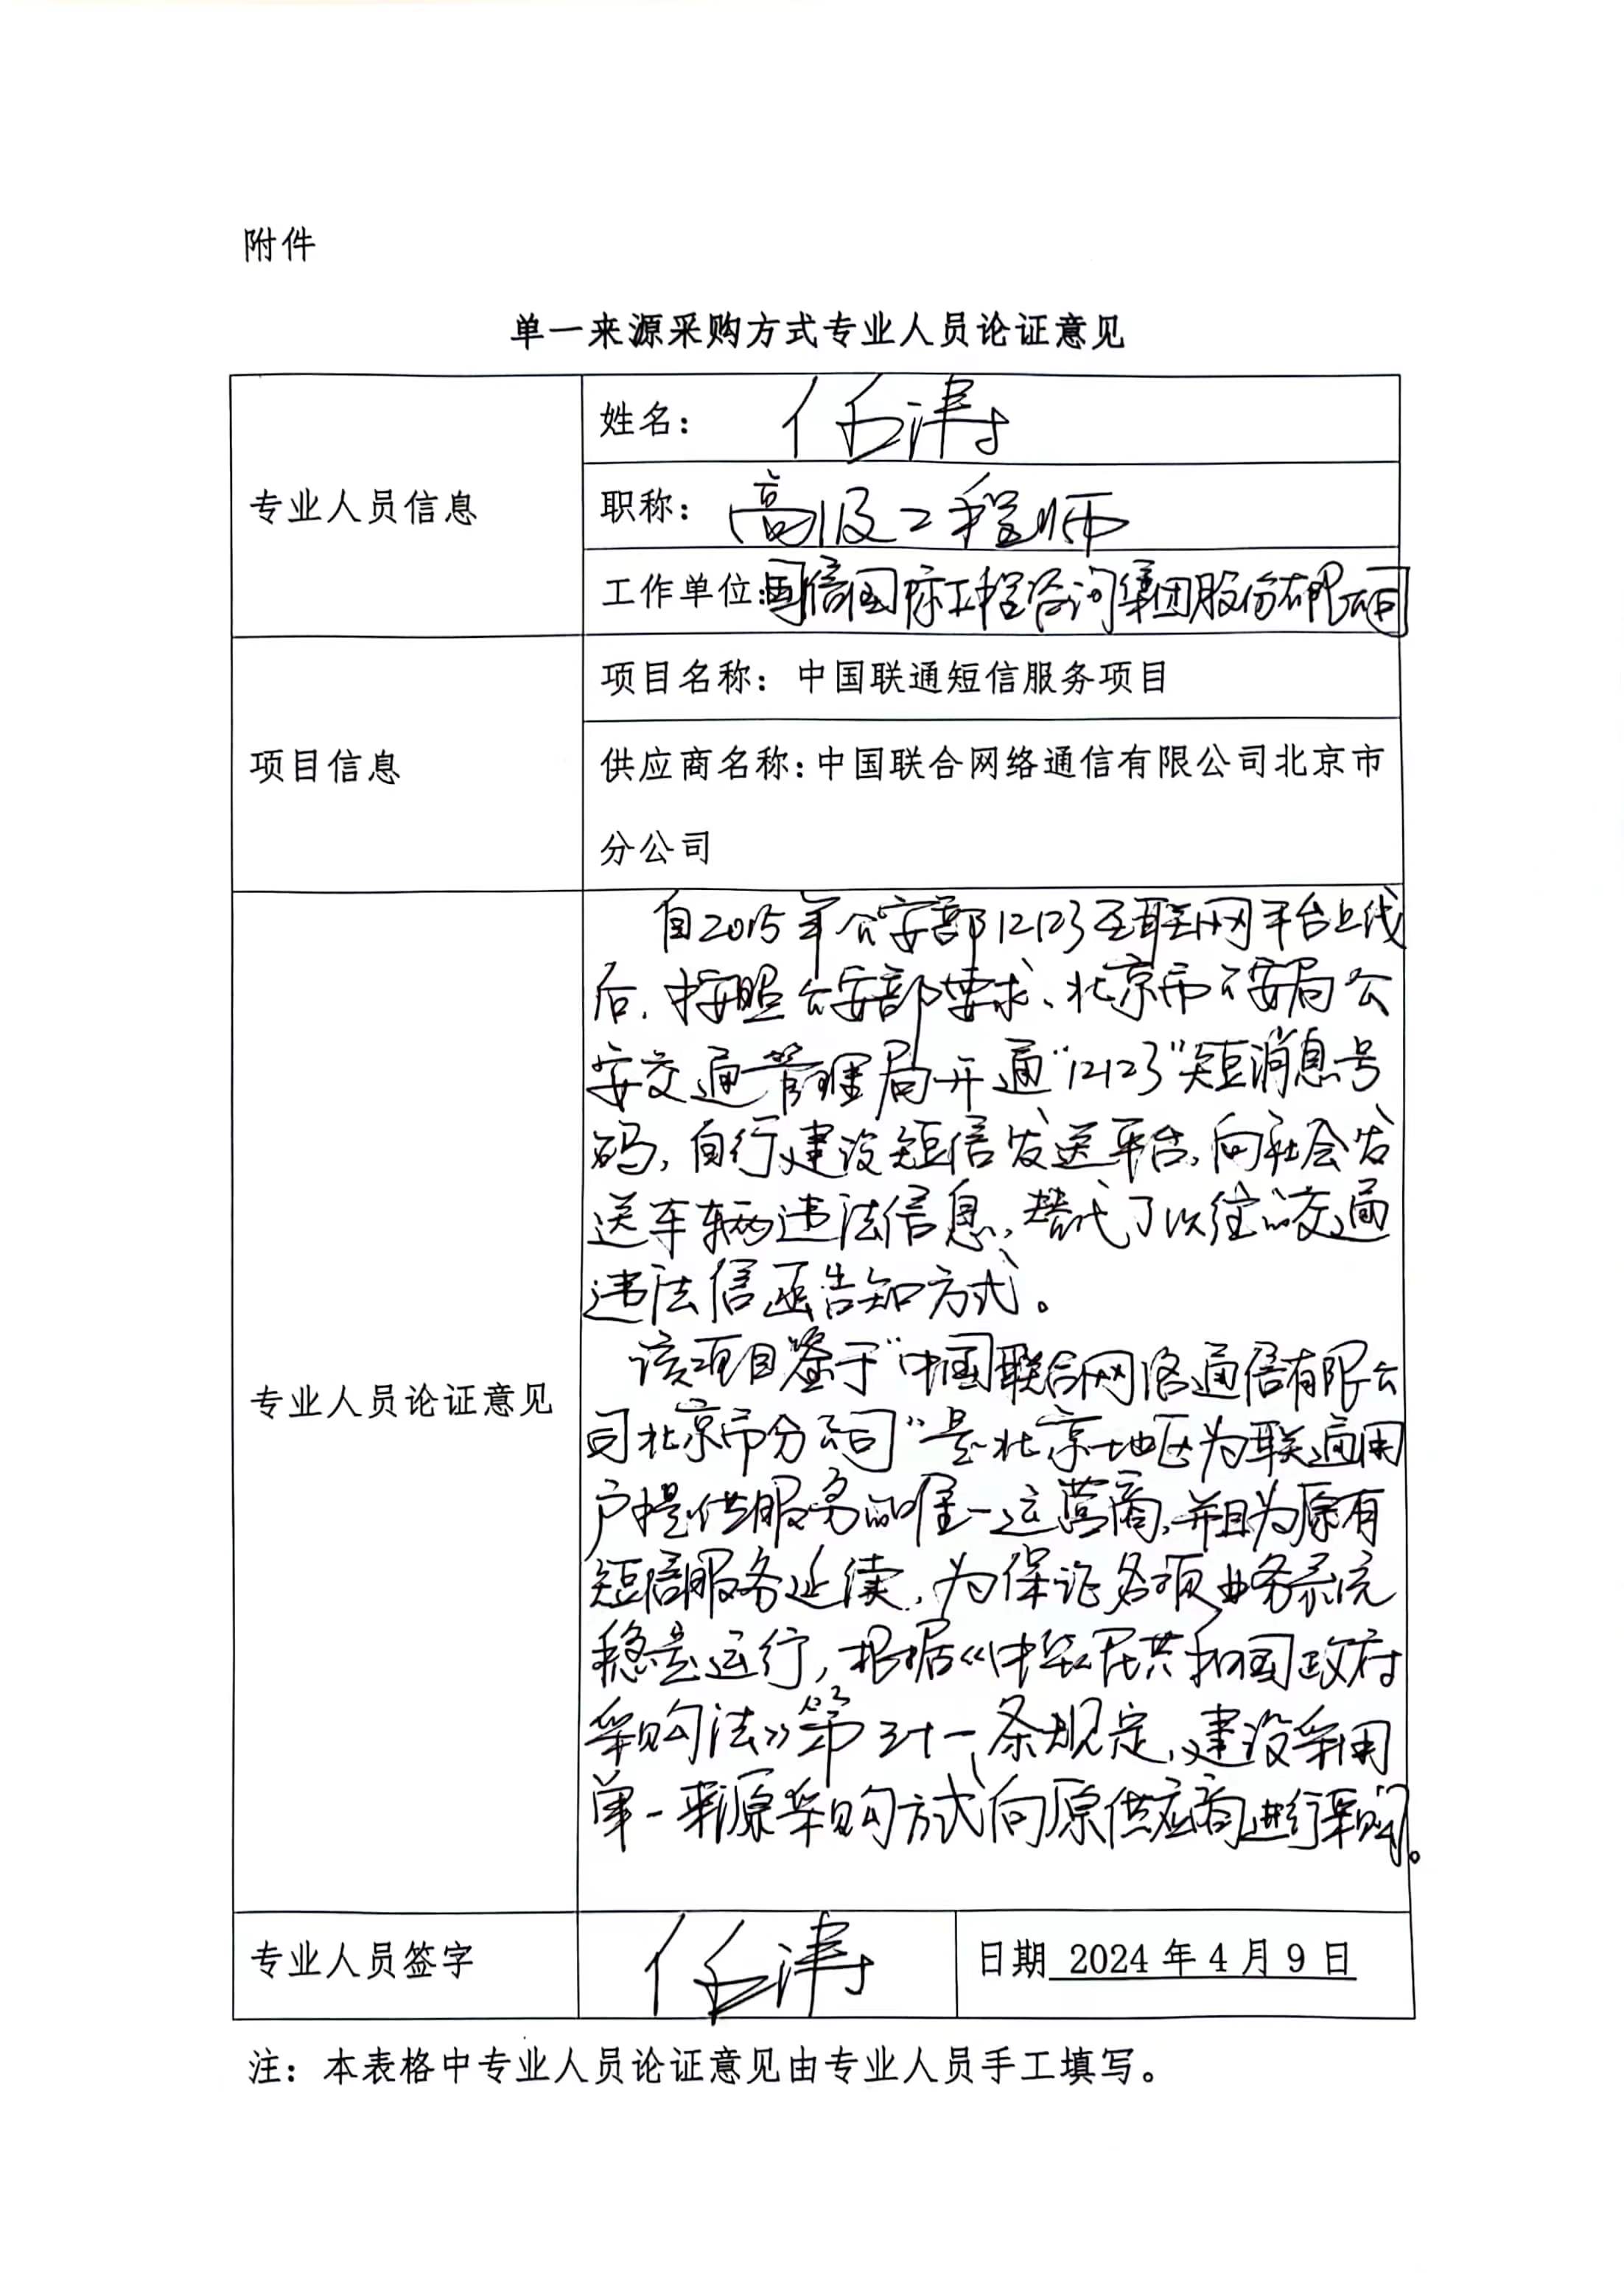 附件
单一来源采购方式专业人员论证意见
专业人员信息
姓名：任涛
职称：高级工程师
工作单位：国信国际工程咨询集团股份有限公司
项目信息
项目名称：中国联通短信服务项目
供应商名称：中国联合网络通信有限公司北京市
分公司
专业人员论证意见
自2015年公安部12123互联网平台上线
后，按照公安部要求、北京市公安局公
安交通管理局开通“12123”短消息号
码，自行建设短信发送平台，向社会发
送车辆违法信息，替代了以往的交通
违法信函告知方式。
该项目鉴于“中国联合网络通信有限公
司北京市分公司”是北京地区为联通用
户提供服务的唯一运营商，并且为原有
短信服务延续，为保证各项业务系统
稳定运行，根据《中华人民共和国政府
采购法》第三十一条规定，建设采用
单一来源采购方式向原供应商进行采购。
专业人员签字
任涛
日期 2024年4月9日
注：本表格中专业人员论证意见由专业人员手工填写。